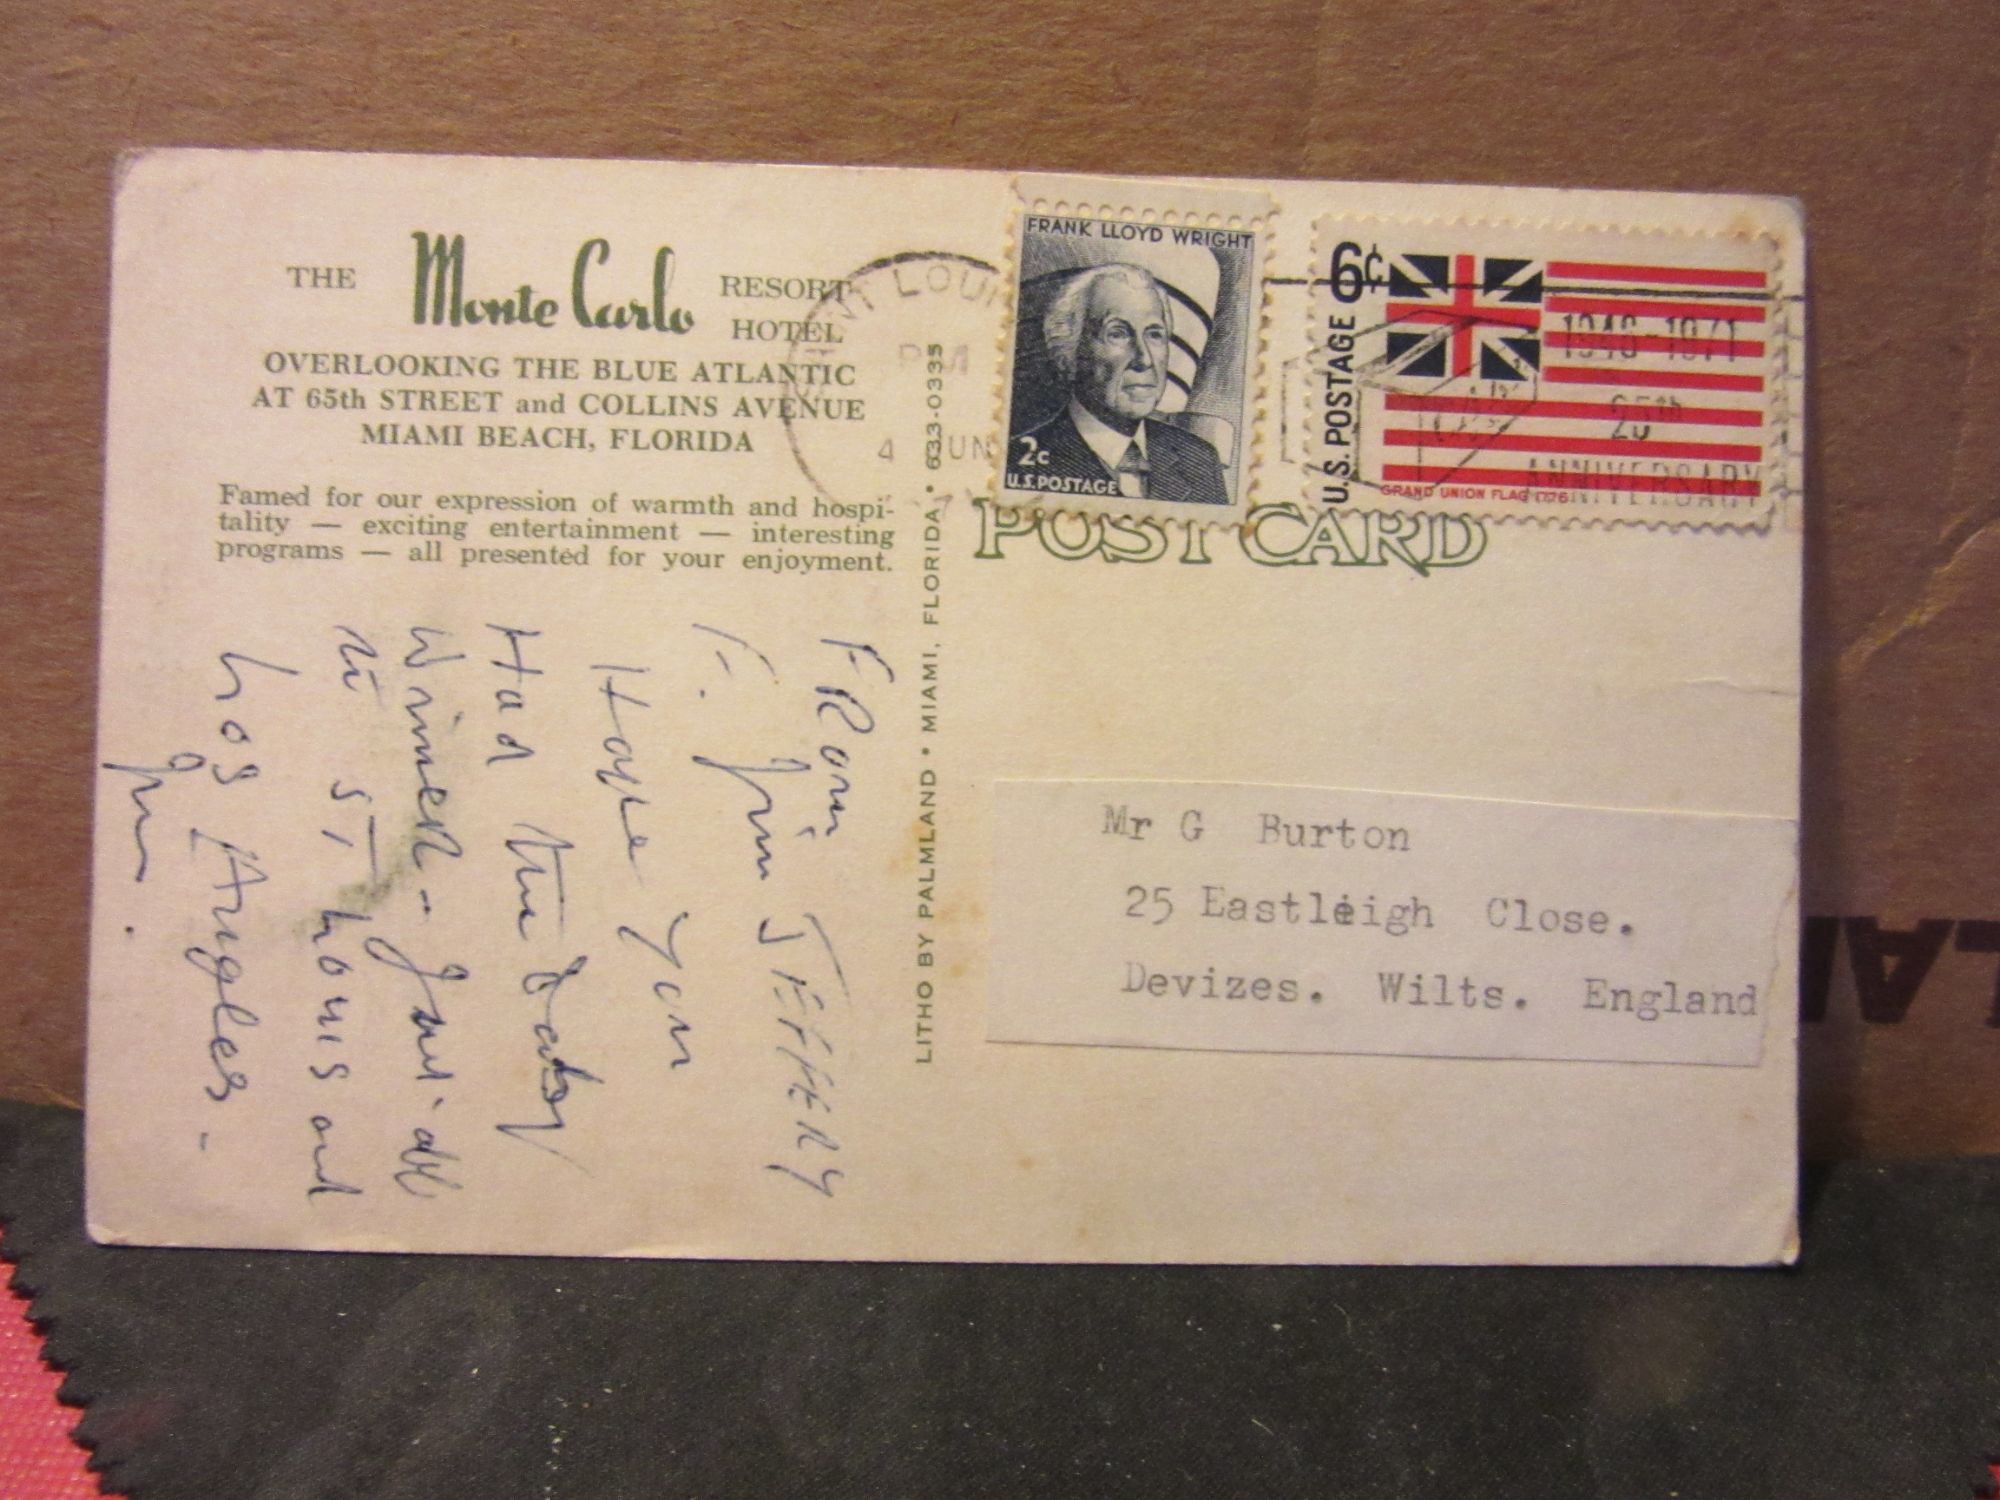 THE Monte Carlo RESORT HOTEL
OVERLOOKING THE BLUE ATLANTIC
AT 65th STREET and COLLINS AVENUE
MIAMI BEACH, FLORIDA
Famed for our expression of warmth and hospi-
tality — exciting entertainment — interesting
programs — all presented for your enjoyment.
FROM
F. Jim JEFFERY
Hope you
Had the Daby
Winner -
in ST. Louis and
Los Angles -
Jim.
LITHO BY PALMLAND • MIAMI, FLORIDA • 633-0335
LOUI
PM
4 JUN
FRANK LLOYD WRIGHT
2c
U.S. POSTAGE
6¢
U.S. POSTAGE
GRAND UNION FLAG 1776
1946-1971
25th
ANNIVERSARY
POST CARD
Mr G Burton
25 Eastleigh Close.
Devizes. Wilts. England